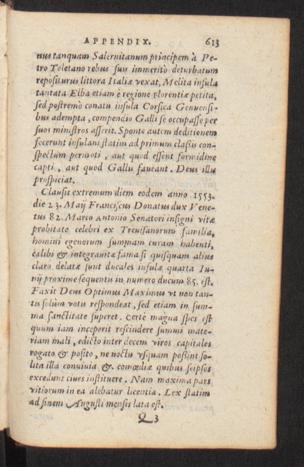 APPENDIX. 613
nus tanquam Salernitanum principem à Pe-
tro Toletano rebus suis immeritò deturbatum
repositurus littora Italiæ vexat, Melita insula
tantata Elba etiam è regione Florentiæ petita,
sed postremò conatu insula Corsica Genuensi-
bus adempta, compendio Galli se occupasse per
suos ministros asserit. Sponte autem deditionem
fecerunt insulani statim ad primum classis con-
spectum permoti, aut quod essent formidine
capti, aut quod Gallis faueant. Deus illis
prospiciat.
Clausit extremum diem eodem anno 1553.
die 23. Maij Franciscus Donatus dux Vene-
tus 82. Marco Antonio Senatori insigni vitæ
probitate celebri ex Treuisanorum familia,
homini egenorum summam curam habenti,
cælibi & integra vitæ fama si quisquam alius
claro delatæ sunt ducales insulæ quarta Iu-
nij proximè sequentis in numero ducum 85. est.
Faxit Deus Optimus Maximus vt non tan-
tùm solùm votis respondeat, sed etiam in sum-
ma sanctitate superet. Certè magna spes est
quum iam inceperit rescindere summi mate-
riam mali, edicto inter decem viros capitales
rogato & posito, ne noctu vsquam possint so-
lita illa conuiuia & comœdiæ quibus seipsos
excedunt ciues instituere. Nam maxima pars
vitiorum in ea alebatur licentia. Lex statim
ad finem Augusti mensis lata est.
Q 3